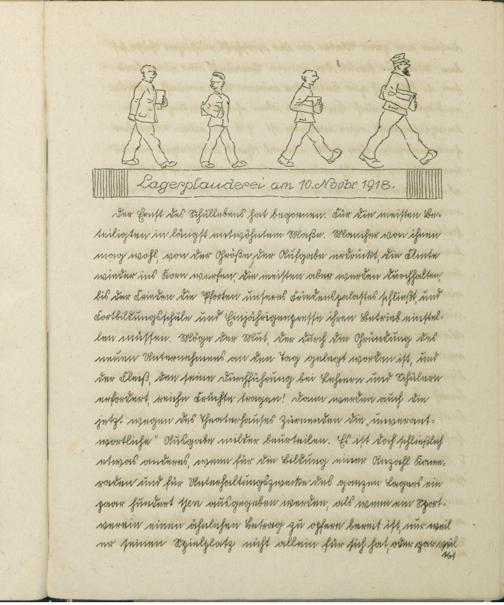 Lagerplauderei am 10. Novbr 1918.
Der Ernst des Schullebens hat begonnen. Für die meisten Be-
teiligten in längst entwöhntem Maße. Mancher von ihnen
mag wohl, von der Größe der Aufgabe erdrückt, die Flinte
wieder ins Korn werfen, die meisten aber werden durchhalten,
bis der Frieden die Pforten unseres Friedenspalastes schließt, und
Fortbildungsschule und Einjährigenpresse ihren Betrieb einstel-
len müssen. Möge der Mut, der durch die Gründung des
neuen Unternehmens an den Tag gelegt worden ist, und
der Fleiß, den seine Durchführung bei Lehrern und Schülern
erfordert, reiche Früchte tragen! Dann werden auch die
jetzt wegen des Theaterhauses Zürnenden die „unverant-
wortliche" Ausgabe milder beurteilen. Es ist doch schließlich
etwas anderes, wenn für die Bildung einer Anzahl Kame-
raden und für Unterhaltungszwecke des ganzen Lagers ein
paar hundert Yen ausgegeben werden, als wenn ein Sport-
verein einen ähnlichen Betrag zu opfern bereit ist, nur weil
er seinen Spielplatz nicht allein für sich hat, oder gar weil